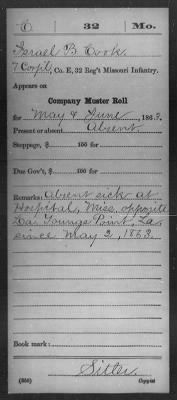 C | 32 | Mo.
Israel B. Cook
7 Corp'l, Co. E, 32 Reg't Missouri Infantry.
Appears on
Company Muster Roll
for May & June, 1863.
Present or absent Absent
Stoppage, $ 100 for
Due Gov't, $ 100 for
Remarks: Absent sick at
Hospital, Miss. opposite
Youngs Point, La.
since May 2, 1863.
Book mark:
Sitler
(358) Copyist.